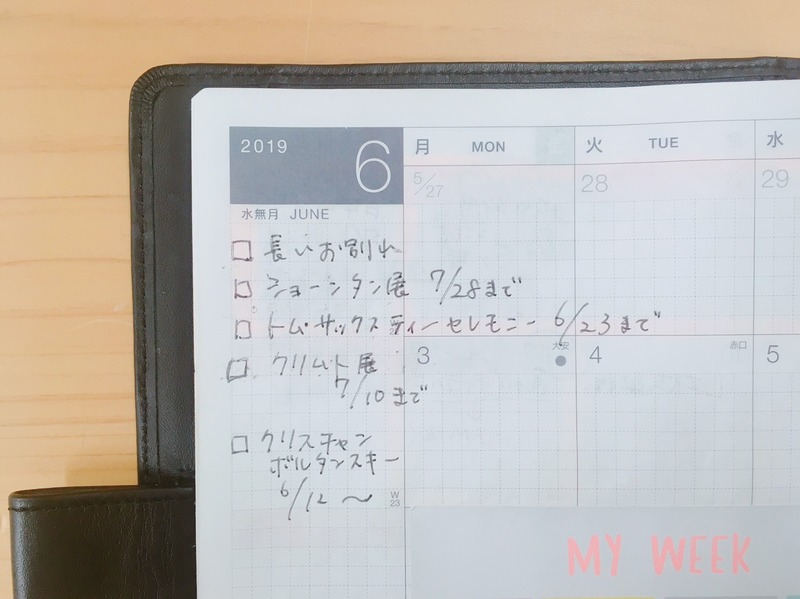 2019 6
水無月 JUNE
月 MON
火 TUE
水
5/27
28
29
長いお別れ
ショーンタン展 7/28まで
トム・サックス ティーセレモニー 6/23まで
クリムト展
7/10まで
クリスチャン
ボルタンスキー
6/12 〜
3 大安
4 赤口
5
W
23
MY WEEK